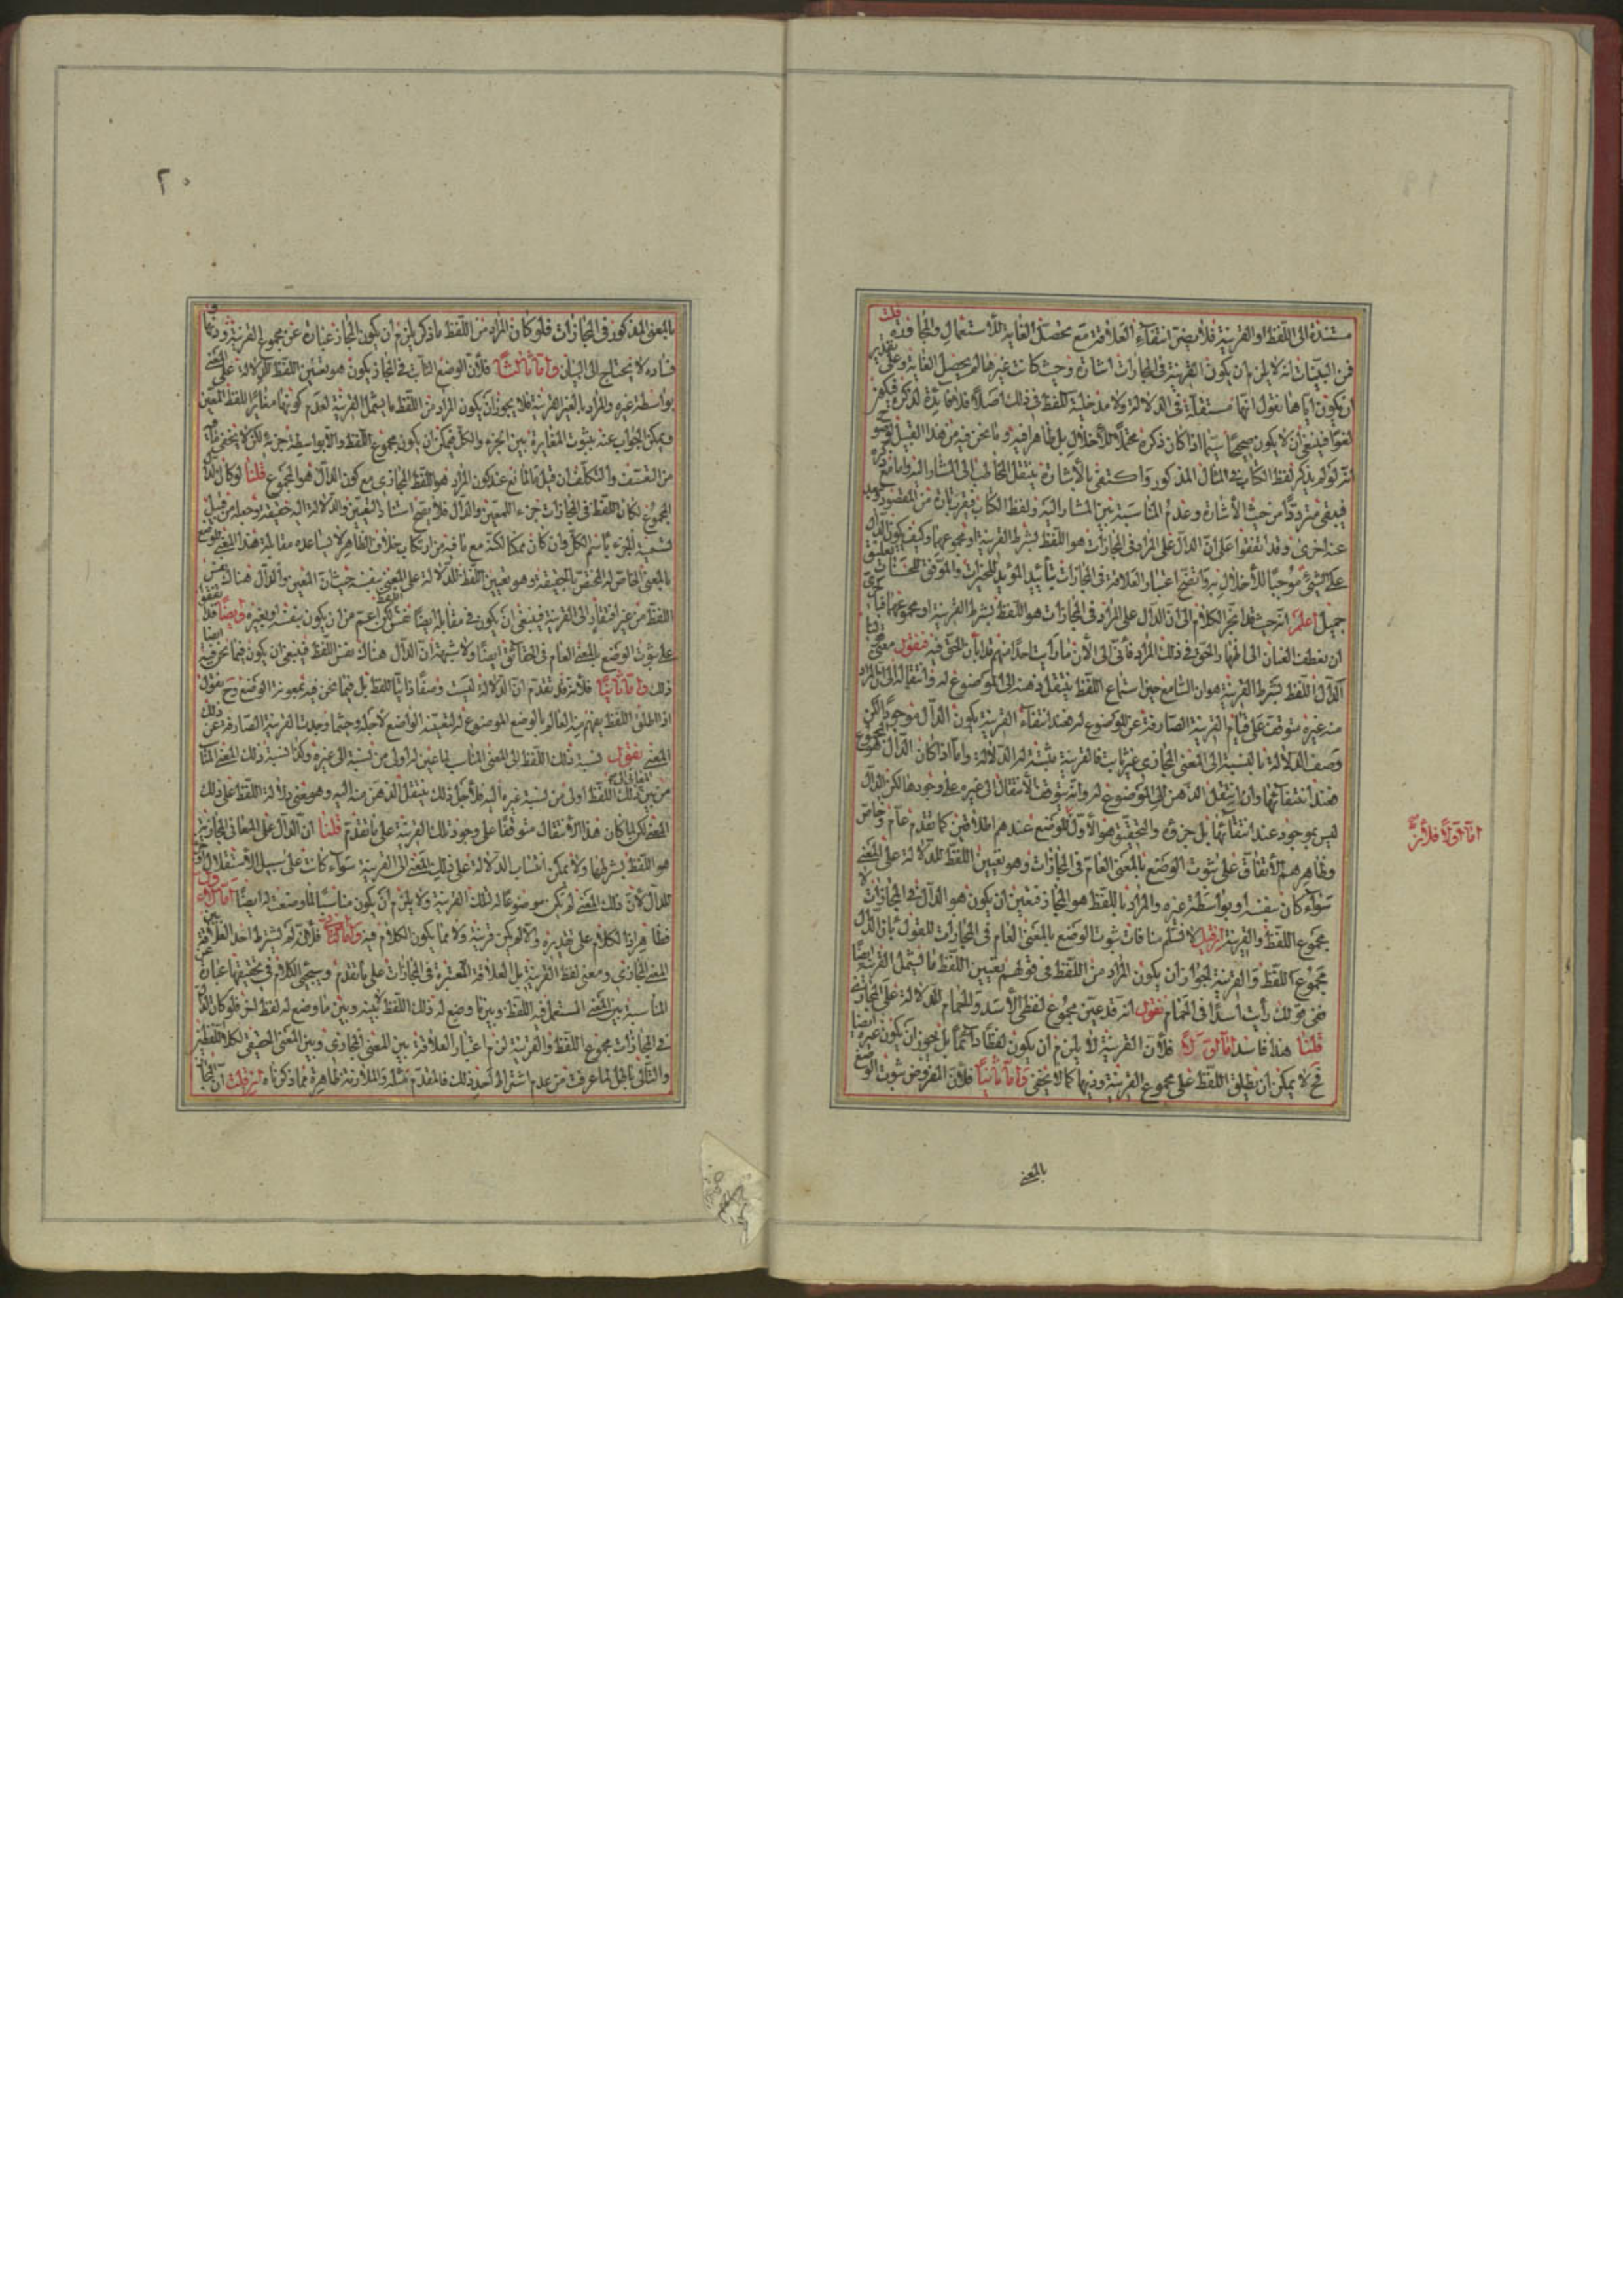 مستندة الى اللفظ او القرينة فلا يضر انتفاء العلاقة مع تحصل الغاية للأستعمال والمجاز قلت
فمن البينات انه لا يلزم ان يكون القرينة في المجازات اشارة وحيث كانت غيرها لم يحصل الغاية وعلى تقدير
ان يكون اياها نقول انها مستقلة في الدلالة ولا مدخلية للفظ في ذلك اصلا فلا فائدة لذكره فيكون
لغوا فينبغي ان لا يكون صحيحا سيما اذا كان ذكره مخلا للأخلال بل ظاهرا فيه وما نحن فيه من هذا القبيل
انه لو لم يذكر لفظ الكتاب في المثال المذكور واكتفى بالأشارة ينتقل المخاطب الى المشار اليه واما مع ذكره
فيبقى مترددا من حيث الأشارة وعدم المناسبة بين المشار اليه ولفظ الكتاب
عند اخرى وقد اتفقوا على ان الدال على المراد في المجازات هو اللفظ بشرط القرينة او مجموعهما وكيف يكون الدال
على الشيء موجبا للأخلال به واتضح اعتبار العلاقة في المجازات بتأييد المؤيد للخيرات والموفق للحسنات
جميل اعلم انه حيث ما انجر الكلام الى ان الدال على المراد في المجازات هو اللفظ بشرط القرينة او مجموعهما
ان نعطف العنان الى اظهار الحق في ذلك المراد فأني الى الأن ما رأيت احدا منهم قد ابان الحق فيه فنقول معنى
الدال اللفظ بشرط القرينة هو ان السامع حين استماع اللفظ ينتقل ذهنه الى الموضوع له وانتقاله الى المراد
منه غيره متوقف على قيام القرينة الصارفة عن الموضوع له فعند انتفاء القرينة يكون الدال موجودا لكن
وصف الدلالة بالنسبة الى المعنى المجازي غير ثابت فالقرينة مثبتة له الدلالة واما اذا كان الدال هو المجموع
فعند انتفائها وان انتقل الذهن الى الموضوع له وانه يتوقف الأنتقال الى غيره على وجودها لكن الدال
ليس بموجود عند انتفائها بل جزؤه والتحقيق هو الأول للوضع عندهم اطلاقين كما تقدم عام وخاص
وظاهرهم الأتفاق على ثبوت الوضع بالمعنى العام في المجازات وهو تعيين اللفظ للدلالة على المعنى
سواء كان بنفسه او بواسطة غيره والمراد باللفظ هو المجاز فتعين ان يكون هو الدال في المجازات لا
مجموع اللفظ والقرينة ان قيل لا نسلم منافات ثبوت الوضع بالمعنى العام في المجازات للقول بأن الدال
مجموع اللفظ والقرينة لجواز ان يكون المراد من اللفظ في قولهم تعيين اللفظ ما يشمل القرينة ايضا
ففي قولك رأيت اسدا في الحمام نقول انه قد عين مجموع لفظي الأسد والحمام للدلالة على المجازي
قلنا هذا فاسد اما اولا فلأن القرينة لا يلزم ان يكون لفظا دائما بل يجوز ان يكون غيره ايضا
فح لا يمكن ان يطلق اللفظ على مجموع القرينة وذيها كما لا يخفى واما ثانيا فلأن المفروض ثبوت الوضع
بالمعنى
اما اولا فلأنه
٢٠
بالمعنى المذكور في المجازات فلو كان المراد من اللفظ ما ذكر يلزم ان يكون المجاز عبارة عن مجموع القرينة وذيها
فساده لا يحتاج الى البيان واما ثالثا فلأن الوضع الثابت في المجاز يكون هو تعيين اللفظ للدلالة على المعنى
بواسطة غيره والمراد بالغير القرينة فلا يجوز ان يكون المراد من اللفظ ما يشمل القرينة لعدم كونها مغايرا للفظ المعين
ويمكن الجواب عنه بثبوت المغايرة بين الجزء والكل فيمكن ان يكون مجموع اللفظ دالا بواسطة جزئه لكن لا يخفى ما فيه
من التعسف والتكلف ان قيل ما المانع عند كون المراد هو اللفظ المجازي مع كون الدال هو المجموع قلنا لو كان الدال
المجموع لكان اللفظ في المجازات جزء المعين والدال فلا يصح اسناد التعيين والدلالة اليه حقيقة وجعله من قبيل
تسمية الجزء باسم الكل وان كان ممكنا لكنه مع ما فيه من ارتكاب خلاف الظاهر لا يساعده مقابلة هذا المعنى للوضع
بالمعنى الخاص المختص بالحقيقة وهو تعيين اللفظ للدلالة على المعنى بنفسه حيث ان المعين والدال هنا نفس
اللفظ من غير افتقار الى القرينة فينبغي ان يكون في مقابله ايضا نفس اللفظ لكن اعم من ان يكون بنفسه او بغيره وايضا قد اتفقوا
على ثبوت الوضع بالمعنى العام في الحقائق ايضا ولا شبهة ان الدال هناك نفس اللفظ فينبغي ان يكون فيما نحن فيه ايضا
ذلك واما ثانيا فلأنه قد تقدم ان الدلالة ليست وصفا ذاتيا للفظ بل فيما نحن فيه بمعونة الوضع وح نقول
اذا اطلق اللفظ يفهم منه العالم بالوضع الموضوع له لتعيينه الواضع لأجله وحيثما وجدت القرينة الصارفة عن ذلك
المعنى نقول نسبة ذلك اللفظ الى المعنى المناسب لما عين له اولى من نسبة الى غيره وكذا نسبة ذلك المعنى المناسب
من بين المعاني الى ذلك اللفظ اولى من نسبة غيره اليه فلأجل ذلك ينتقل الذهن منه اليه وهو معنى دلالة اللفظ على ذلك
المعنى لكن لما كان هذا الأنتقال متوقفا على وجود تلك القرينة على ما تقدم قلنا ان الدال على المعاني المجازية
هو اللفظ بشرطها ولا يمكن انتساب الدلالة على ذلك المعنى الى القرينة سواء كانت على سبيل الأستقلال او
للدال لأن ذلك المعنى لم يكن موضوعا له لتلك القرينة ولا يلزم ان يكون مناسبا لما وضعت له ايضا اما الأول
فظاهر اذ الكلام على تقديره والا لم يكن قرينة ولا مما يكون الكلام فيه واما الثاني فلأنه لم يشترط احد العلاقة بين
المعنى المجازي ومعنى لفظ القرينة بل العلاقة المعتبرة في المجازات على ما تقدم وسيجيء الكلام في تحقيقها عبارة عن
المناسبة بين المعنى المستعمل فيه اللفظ وبين ما وضع له ذلك اللفظ لا بينه وبين ما وضع له لفظ اخر فلو كان الدال
في المجازات مجموع اللفظ والقرينة لزم اعتبار العلاقة بين المعنى المجازي وبين المعنى الحقيقي لكلا اللفظين
والتالي باطل لما عرفت من عدم اشتراط احد ذلك فالمقدم مثله والملازمة ظاهرة مما ذكرناه ان قلت ان المجاز